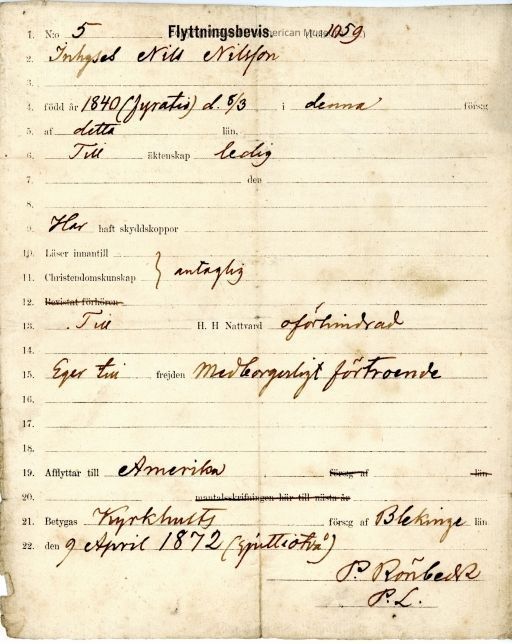 1. N:o 5 Flyttningsbevis. 1059
2. Inhyses Nils Nilsson
3.
4. född år 1840 (fyratio) d. 8/3 i denna förs:g
5. af detta län,
6. Till äktenskap ledig
7. den
8.
9. Har haft skyddskoppor
10. Läser innantill
11. Christendomskunskap } antaglig
12. Bevistat förhören
13. Till H. H Nattvard oförhindrad
14.
15. Eger till frejden Medborgerligt förtroende
16.
17.
18.
19. Afflyttar till Amerika förs:g af län
20. mantalsskrifningen här till nästa år
21. Betygas Kyrkhults förs:g af Blekinge län
22. den 9 April 1872 (sjuttiotvå)
P. Rönbeck
P. L.